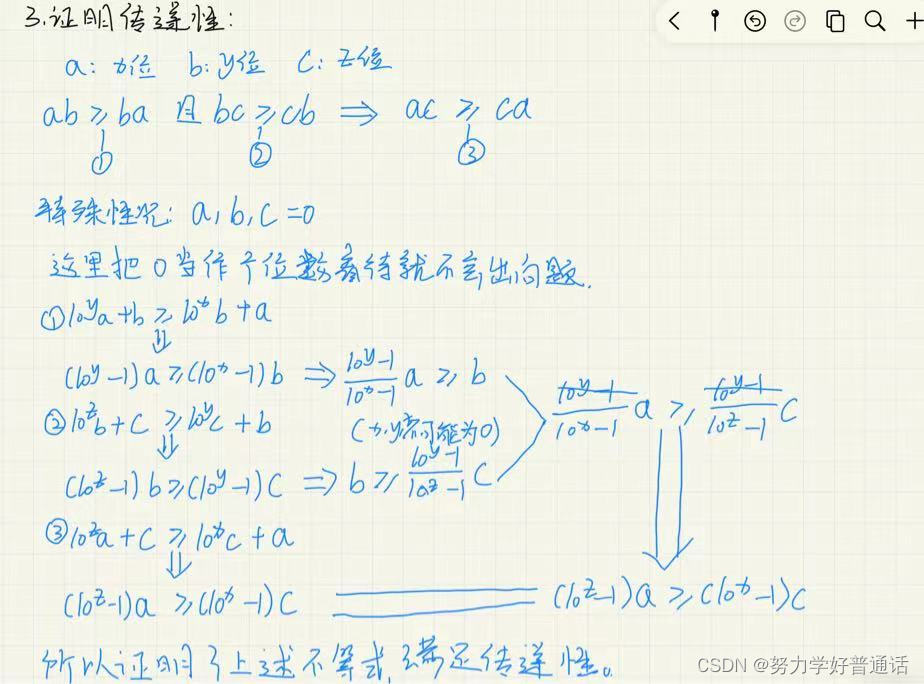 3.证明传递性:
a: x位 b: y位 c: z位
ab ≥ ba 且 bc ≥ cb ⇒ ac ≥ ca
① ② ③
特殊情况: a, b, c = 0
这里把 0 当作个位数看待就不会出问题.
① 10^y a + b ≥ 10^x b + a
⇓
(10^y - 1) a ≥ (10^x - 1) b ⇒ \frac{10^y - 1}{10^x - 1} a ≥ b
② 10^z b + c ≥ 10^y c + b
(x, y不可能为0)
\frac{10^y - 1}{10^x - 1} a ≥ \frac{10^y - 1}{10^z - 1} c
⇓
(10^z - 1) b ≥ (10^y - 1) c ⇒ b ≥ \frac{10^y - 1}{10^z - 1} c
③ 10^z a + c ≥ 10^x c + a
⇓
(10^z - 1) a ≥ (10^x - 1) c = (10^z - 1) a ≥ (10^x - 1) c
所以证明了上述不等式满足传递性。
CSDN @努力学好普通话